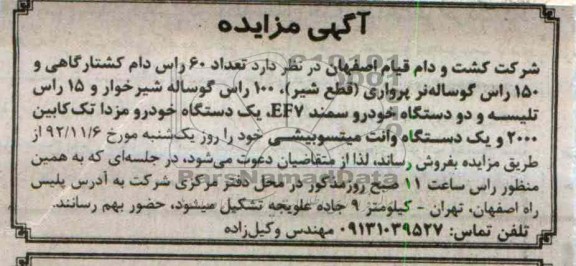 آگهی مزایده
شرکت کشت و دام قیام اصفهان در نظر دارد تعداد ۶۰ راس دام کشتارگاهی و
۱۵۰ راس گوساله‌نر پرواری (قطع شیر)، ۱۰۰ راس گوساله شیرخوار و ۱۵ راس
تلیسه و دو دستگاه خودرو سمند EF۷، یک دستگاه خودرو مزدا تک‌کابین
۲۰۰۰ و یک دستگاه وانت میتسوبیشی خود را روز یکشنبه مورخ ۹۲/۱۱/۶ از
طریق مزایده بفروش رساند، لذا از متقاضیان دعوت می‌شود، در جلسه‌ای که به همین
منظور راس ساعت ۱۱ صبح روزمذکور در محل دفتر مرکزی شرکت به آدرس پلیس
راه اصفهان، تهران - کیلومتر ۹ جاده علویجه تشکیل میشود، حضور بهم رسانند.
تلفن تماس: ۰۹۱۳۱۰۳۹۵۲۷ مهندس وکیل‌زاده
ParsNamadData